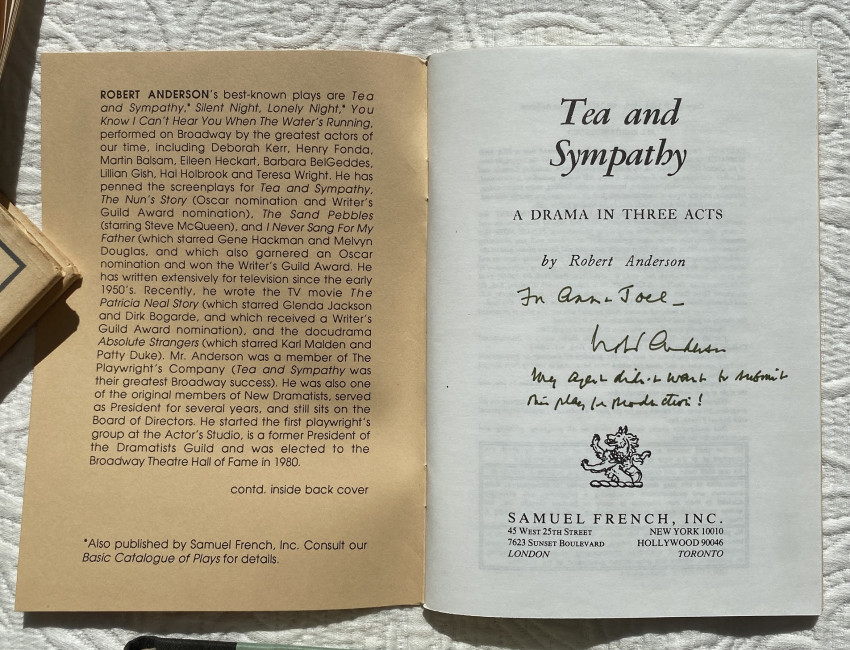 ROBERT ANDERSON's best-known plays are Tea
and Sympathy,* Silent Night, Lonely Night,* You
Know I Can't Hear You When The Water's Running,
performed on Broadway by the greatest actors of
our time, including Deborah Kerr, Henry Fonda,
Martin Balsam, Eileen Heckart, Barbara BelGeddes,
Lillian Gish, Hal Holbrook and Teresa Wright. He has
penned the screenplays for Tea and Sympathy,
The Nun's Story (Oscar nomination and Writer's
Guild Award nomination), The Sand Pebbles
(starring Steve McQueen), and I Never Sang For My
Father (which starred Gene Hackman and Melvyn
Douglas, and which also garnered an Oscar
nomination and won the Writer's Guild Award. He
has written extensively for television since the early
1950's. Recently, he wrote the TV movie The
Patricia Neal Story (which starred Glenda Jackson
and Dirk Bogarde, and which received a Writer's
Guild Award nomination), and the docudrama
Absolute Strangers (which starred Karl Malden and
Patty Duke). Mr. Anderson was a member of The
Playwright's Company (Tea and Sympathy was
their greatest Broadway success). He was also one
of the original members of New Dramatists, served
as President for several years, and still sits on the
Board of Directors. He started the first playwright's
group at the Actor's Studio, is a former President of
the Dramatists Guild and was elected to the
Broadway Theatre Hall of Fame in 1980.
contd. inside back cover
*Also published by Samuel French, Inc. Consult our
Basic Catalogue of Plays for details.
Tea and
Sympathy
A DRAMA IN THREE ACTS
by Robert Anderson
For Joel –
Robert Anderson
My agent didn't want to submit
this play for production!
SAMUEL FRENCH, INC.
45 WEST 25TH STREET NEW YORK 10010
7623 SUNSET BOULEVARD HOLLYWOOD 90046
LONDON TORONTO